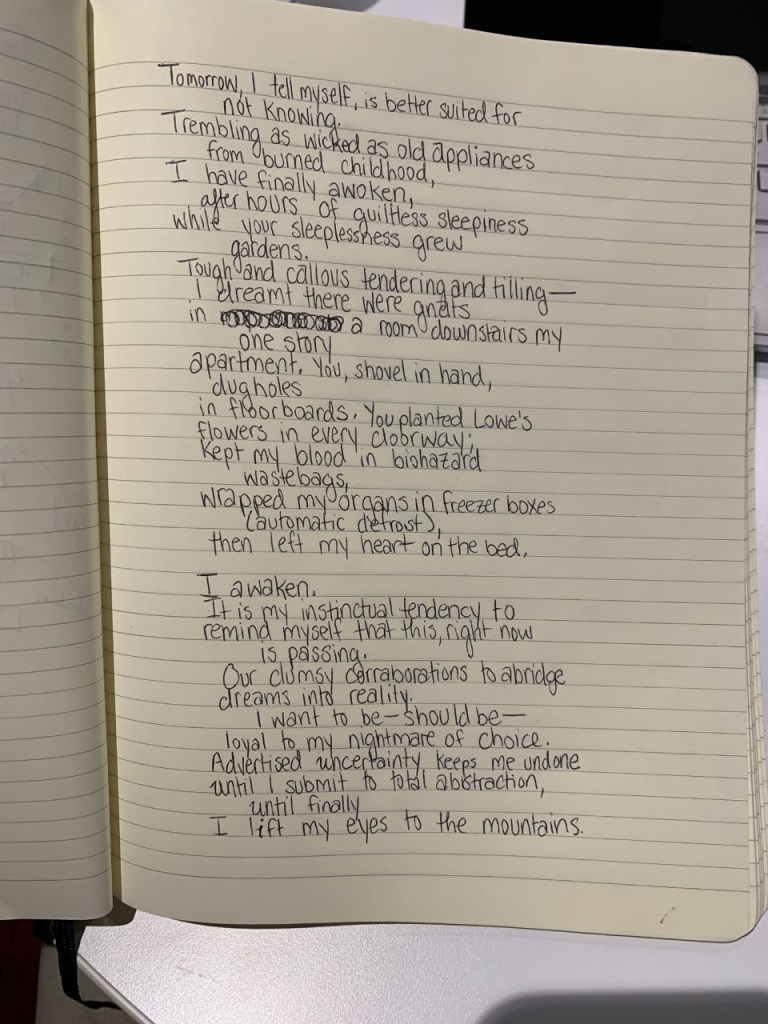 Tomorrow, I tell myself, is better suited for
not knowing.
Trembling as wicked as old appliances
from burned childhood,
I have finally awoken,
after hours of guiltless sleepiness
while your sleeplessness grew
gardens.
Tough and callous tendering and tilling—
I dreamt there were gnats
in a room downstairs my
one story
apartment. You, shovel in hand,
dug holes
in floorboards. You planted Lowe's
flowers in every doorway;
kept my blood in biohazard
wastebags,
wrapped my organs in freezer boxes
(automatic defrost),
then left my heart on the bed.
I awaken.
It is my instinctual tendency to
remind myself that this, right now
is passing.
Our clumsy corraborations to abridge
dreams into reality.
I want to be—should be—
loyal to my nightmare of choice.
Advertised uncertainty keeps me undone
until I submit to total abstraction,
until finally
I lift my eyes to the mountains.